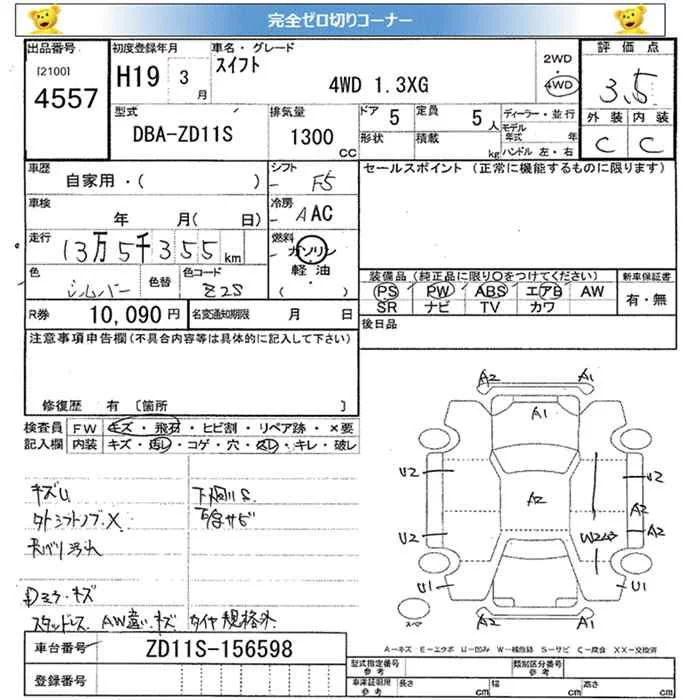 完全ゼロ切りコーナー
出品番号 初度登録年月 車名・グレード 2WD 評価点
[2100] 4557 H19 3月 スイフト 4WD 1.3XG ・ 4WD 3.5
型式 排気量 ドア 5 定員 5人 ディーラー・並行 外装 内装
DBA-ZD11S 1300cc 形状 積載 kg モデル年式 年 ハンドル 左・右 C C
車歴 自家用・( ) シフト F5 セールスポイント (正常に機能するものに限ります)
車検 年 月( 日) 冷房 AAC
走行 13万5千355km 燃料 ガソリン 軽油 ( )
色 シルバー 色替 色コード Z2S
装備品(純正品に限り〇をつけてください) 新車保証書
PS PW ABS エアB AW 有・無
SR ナビ TV カワ
R券 10,090円 名変通知期限 月 日 後日品
注意事項申告欄(不具合内容等は具体的に記入して下さい)
修復歴 有 〔箇所 〕
検査員 FW キズ・飛石・ヒビ割・リペア跡・×要
記入欄 内装 キズ・汚レ・コゲ・穴・スレ・キレ・破レ
A2 A1
A1
U2 U2
A2
A2
U2 W2 A2
U1 U1
A2 A2
キズU 下廻りS
外シフトノブX
スタッドレス AW違い キズ タイヤ規格外
A=キズ E=エクボ U=凹み W=補修跡 S=サビ C=腐食 XX=交換済
車台番号 ZD11S-156598
登録番号
型式指定番号 参考 類別区分番号 参考
車庫証明用 参考 長さ cm 幅 cm 高さ cm